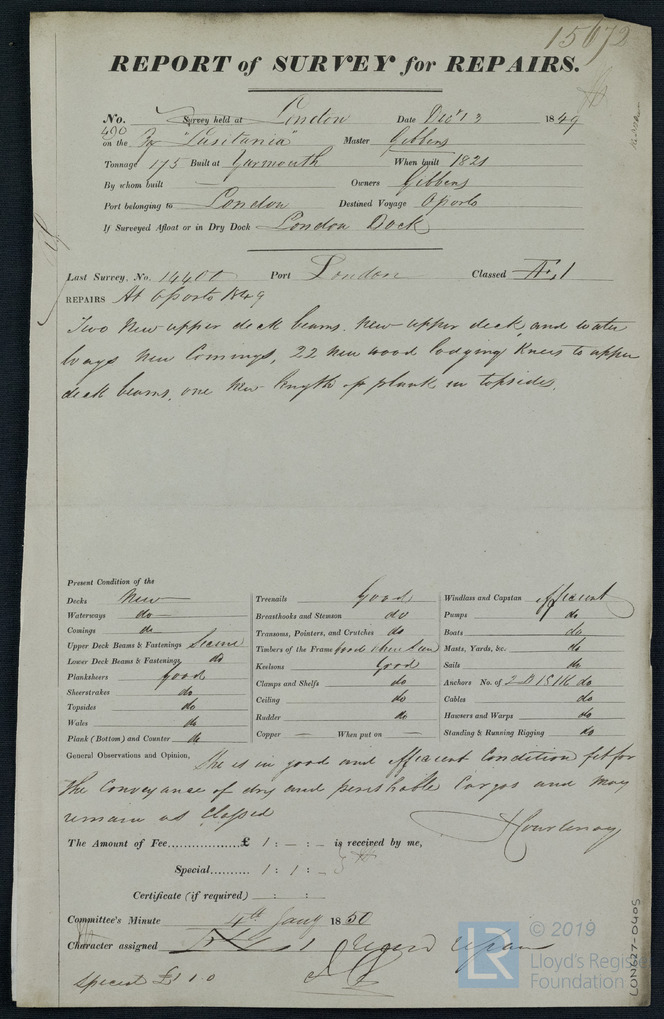 15672
REPORT of SURVEY for REPAIRS.
No. Survey held at London Date Decr 13 1849
490
on the Bg "Lusitania" Master Gibbens
Tonnage 175 Built at Yarmouth When built 1821
By whom built — Owners Gibbens
Port belonging to London Destined Voyage Oporto
If Surveyed Afloat or in Dry Dock London Dock
Last Survey, No. Port London Classed Æ 1
REPAIRS At Oporto 1849
Two New upper deck beams. New upper deck and water
ways New Comings, 22 new wood lodging Knees to upper
deck beams, one New length of plank in topsides.
Present Condition of the
Decks New
Waterways do
Comings do
Upper Deck Beams & Fastenings Secure
Lower Deck Beams & Fastenings do
Planksheers good
Sheerstrakes do
Topsides do
Wales do
Plank (Bottom) and Counter do
Treenails Good
Breasthooks and Stemson do
Transoms, Pointers, and Crutches do
Timbers of the Frame good when seen
Keelsons Good
Clamps and Shelfs do
Ceiling do
Rudder do
Copper — When put on —
Windlass and Capstan efficient
Pumps do
Boats do
Masts, Yards, &c. do
Sails do
Anchors No. of 2 B 1 S 1 K do
Cables do
Hawsers and Warps do
Standing & Running Rigging do
General Observations and Opinion, She is in good and efficient Condition fit for
the Conveyance of dry and perishable Cargos and may
remain as Classed
J Courtenay
The Amount of Fee.......... £ 1 : — : — is received by me,
Special.......... 1 : 1 : —
Certificate (if required) : :
Committee's Minute 4th Jany 1850
Character assigned
Special £1 1 0
LON627-0405
LR © 2019
Lloyd's Register
Foundation